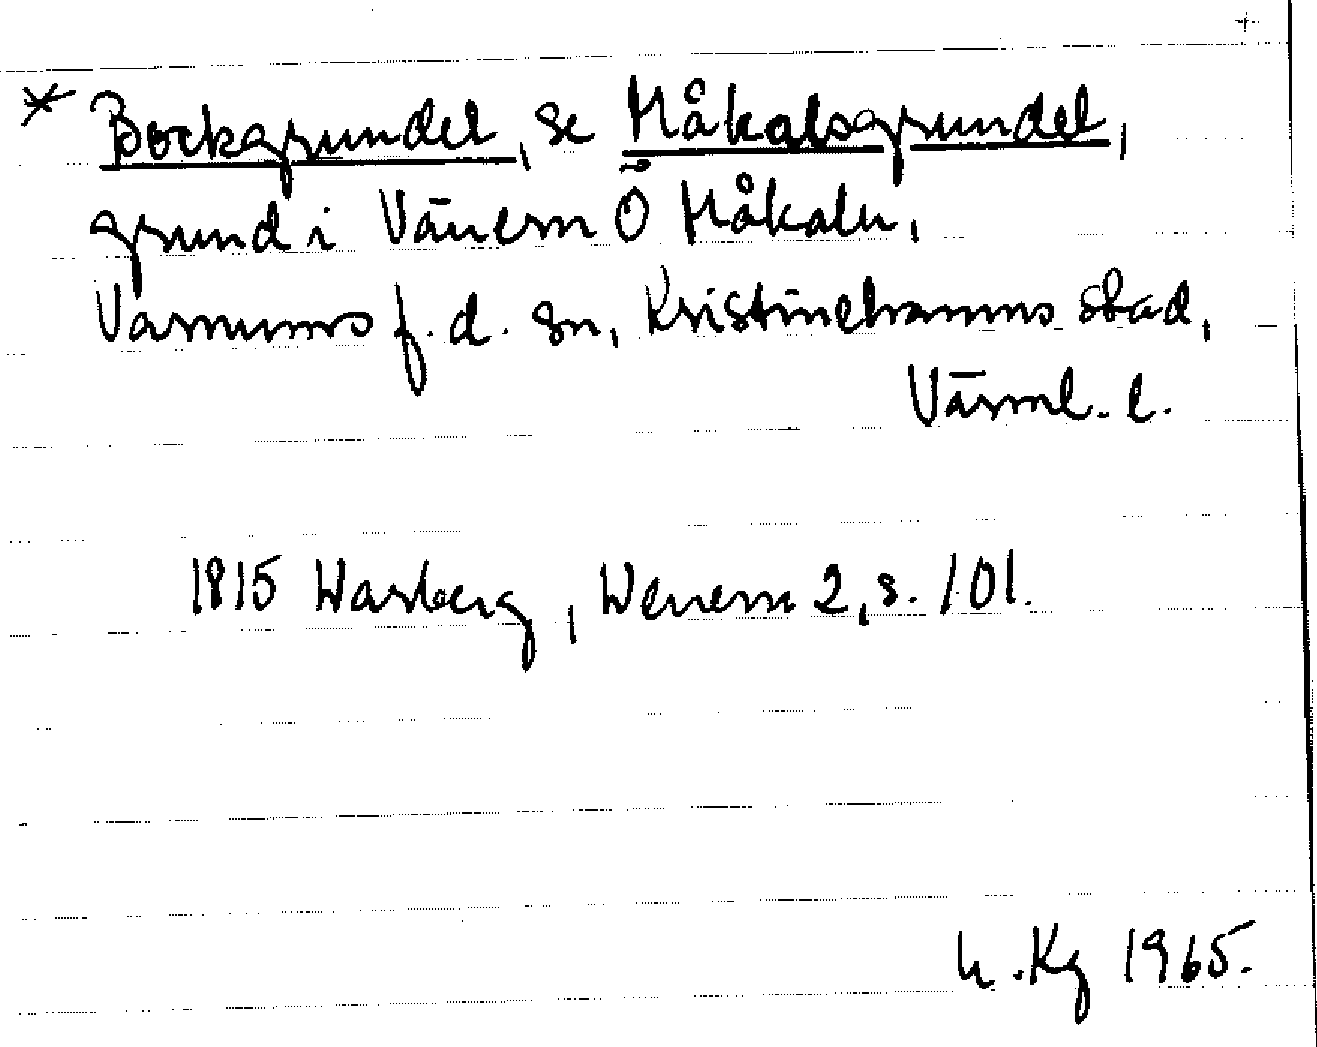 +
* Bockgrundet, se Håkalsgrundet,
grund i Vänern Ö Håkaln,
Varnums f.d. sn, Kristinehamns stad,
Värml. l.
1815 Warberg, Wenern 2, s. 101.
h. Kg 1965.